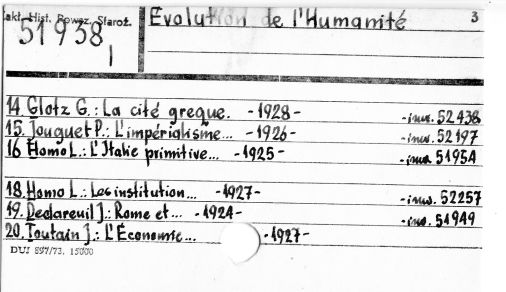 Zakł. Hist. Powsz. Staroż.
51938
1
Evolution de l'Humanité
3
14. Glotz G.: La cité greque. -1928- -inw. 52438
15. Jouguet P.: L'impérialisme... -1926- -inw. 52197
16 Homo L.: L'Italie primitive... -1925- -inw. 51954
18. Homo L.: Les institution... -1927- -inw. 52257
19. Declareuil J.: Rome et... -1924- -inw. 51949
20. Toutain J.: L'Économie... -1927-
DUJ 897/73. 15000